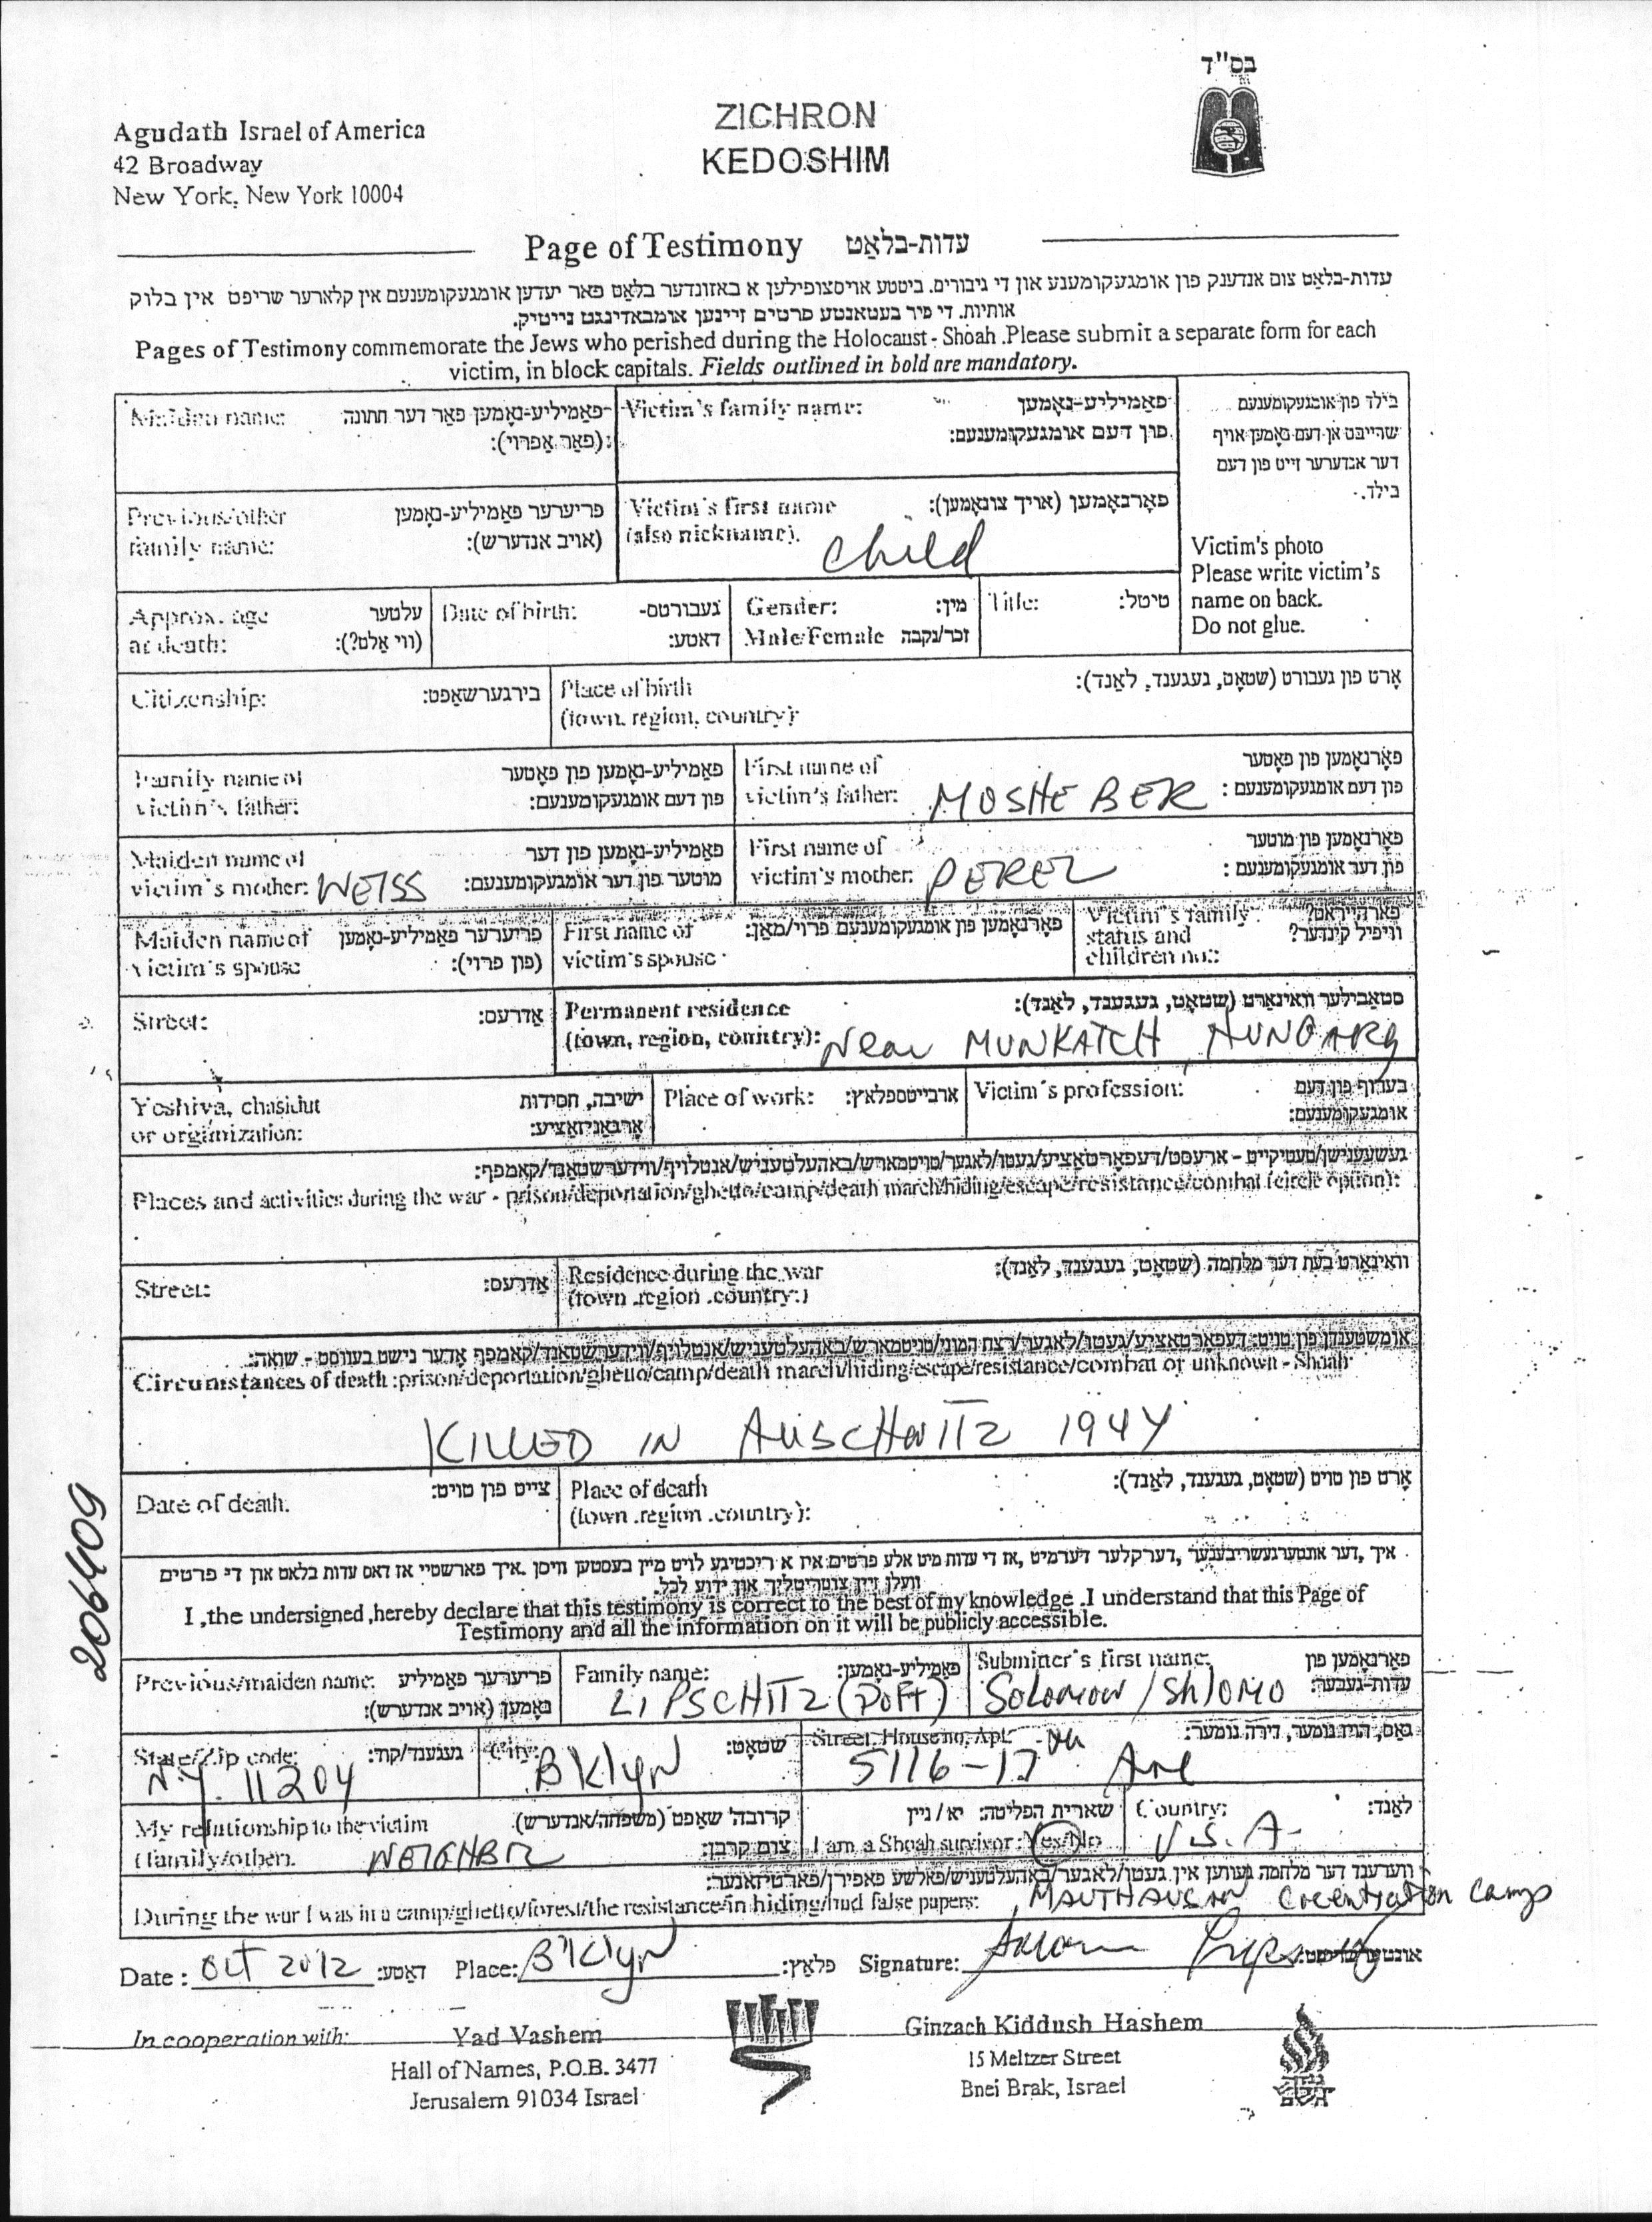 בס"ד
Agudath Israel of America
42 Broadway
New York, New York 10004
ZICHRON
KEDOSHIM
Page of Testimony עדות-בלאַט
עדות-בלאַט צום אנדענק פון אומגעקומענע און די גיבורים. ביטע אויסצופילען א באזונדער בלאַט פאר יעדען אומגעקומענעם אין קלארער שריפט אין בלוק
אותיות. די פיר בעטאנטע פרטים זיינען אומבאדינגט נייטיק.
Pages of Testimony commemorate the Jews who perished during the Holocaust - Shoah .Please submit a separate form for each
victim, in block capitals. Fields outlined in bold are mandatory.
Maiden name: פאַמיליע-נאָמען פאַר דער חתונה
(פאַר אַפרוי):
Victim's family name: פאַמיליע-נאָמען
פון דעם אומגעקומענעם:
בילד פון אומגעקומענעם
שרייבט אן דעם נאָמען אויף
דער אנדערער זייט פון דעם
בילד.
Victim's photo
Please write victim's
name on back.
Do not glue.
Previous/other פריערער פאַמיליע-נאָמען
family name: (אויב אנדערש):
Victim's first name פאָרנאָמען (אויך צונאָמען):
(also nickname). child
Approx. age עלטער
at death: (ווי אַלט?):
Date of birth: געבורטס-
דאטע:
Gender: מין:
Male/Female זכר/נקבה
Title: טיטל:
Citizenship: בירגערשאַפט:
Place of birth אָרט פון געבורט (שטאָט, געגענד, לאַנד):
(town, region, country):
Family name of פאַמיליע-נאָמען פון פאָטער
victim's father: פון דעם אומגעקומענעם:
First name of פאָרנאָמען פון פאָטער
victim's father: MOSHE BER פון דעם אומגעקומענעם :
Maiden name of פאַמיליע-נאָמען פון דער
victim's mother: WEISS מוטער פון דער אומגעקומענעם:
First name of פאָרנאָמען פון מוטער
victim's mother: PEREL פון דער אומגעקומענעם :
Maiden name of פריערער פאַמיליע-נאָמען
victim's spouse (פון פרוי):
First name of פאָרנאָמען פון אומגעקומענעם פרוי/מאַן:
victim's spouse
Victim's family פארהייראט?
status and וויפיל קינדער?
children no.:
Street: אַדרעס:
Permanent residence סטאַבילער וואינארט (שטאָט, געגענד, לאַנד):
(town, region, country): Near MUNKATCH, HUNGARY
Yeshiva, chasidut ישיבה, חסידות
or organization: אָרגאַניזאַציע:
Place of work: ארבייטספלאץ:
Victim's profession: בערוף פון דעם
אומגעקומענעם:
געשעענישן/טעטיקייט - ארעסט/דעפאָרטאַציע/געטו/לאגער/טויטמארש/באהעלטעניש/אנטלויף/ווידערשטאַנד/קאמפף:
Places and activities during the war - prison/deportation/ghetto/camp/death march/hiding/escape/resistance/combat (circle option):
Street: אַדרעס:
Residence during the war וואינארט בעת דער מלחמה (שטאָט, געגענד, לאַנד):
(town .region .country:)
אומשטענדן פון טויט: דעפאָרטאַציע/געטו/לאגער/רצח המוני/טויטמארש/באהעלטעניש/אנטלויף/ווידערשטאנד/קאמפף אָדער נישט בעוווסט - שואה:
Circumstances of death :prison/deportation/ghetto/camp/death march/hiding/escape/resistance/combat or unknown - Shoah
KILLED IN AUSCHWITZ 1944
Date of death: צייט פון טויט:
Place of death אָרט פון טויט (שטאָט, געגענד, לאַנד):
(town .region .country):
איך ,דער אונטערגעשריבענער ,דערקלער דערמיט ,אז די עדות מיט אלע פרטים איז א ריכטיגע לויט מיין בעסטען וויסן .איך פארשטיי אז דאס עדות בלאט און די פרטים
וועלן זיין צוטריטליך און ידוע לכל.
I ,the undersigned ,hereby declare that this testimony is correct to the best of my knowledge .I understand that this Page of
Testimony and all the information on it will be publicly accessible.
Previous/maiden name: פריערער פאַמיליע
נאָמען (אויב אנדערש):
Family name: פאַמיליע-נאָמען:
LIPSCHITZ (POFT)
Submitter's first name: פאָרנאָמען פון
Solomow / Shlomo עדות-געבער:
State/Zip code: געגענד/קוד:
N.Y. 11204
City: שטאָט:
BKlyN
Street, House no, Apt. גאַס, הויז נומער, דירה נומער:
5116-17th Ave
My relationship to the victim קרובה'שאַפט (משפחה/אנדערש)
(family/other). NEIGHBR צום קרבן:
שארית הפליטה: יא / ניין
I am a Shoah survivor: Yes/No
Country: לאַנד:
U.S.A-
ווערענד דער מלחמה געווען אין געטו/לאגער/באהעלטעניש/פאלשע פאפירן/פארטיזאנער:
During the war I was in a camp/ghetto/forest/the resistance/in hiding/had false papers: MAUTHAUSAN Cocentration Camp
Date : Oct 2012 דאטע: Place: B'Klyn פלאץ: Signature: אונטערשריפט:
In cooperation with: Yad Vashem
Hall of Names, P.O.B. 3477
Jerusalem 91034 Israel
Ginzach Kiddush Hashem
15 Meltzer Street
Bnei Brak, Israel
206409